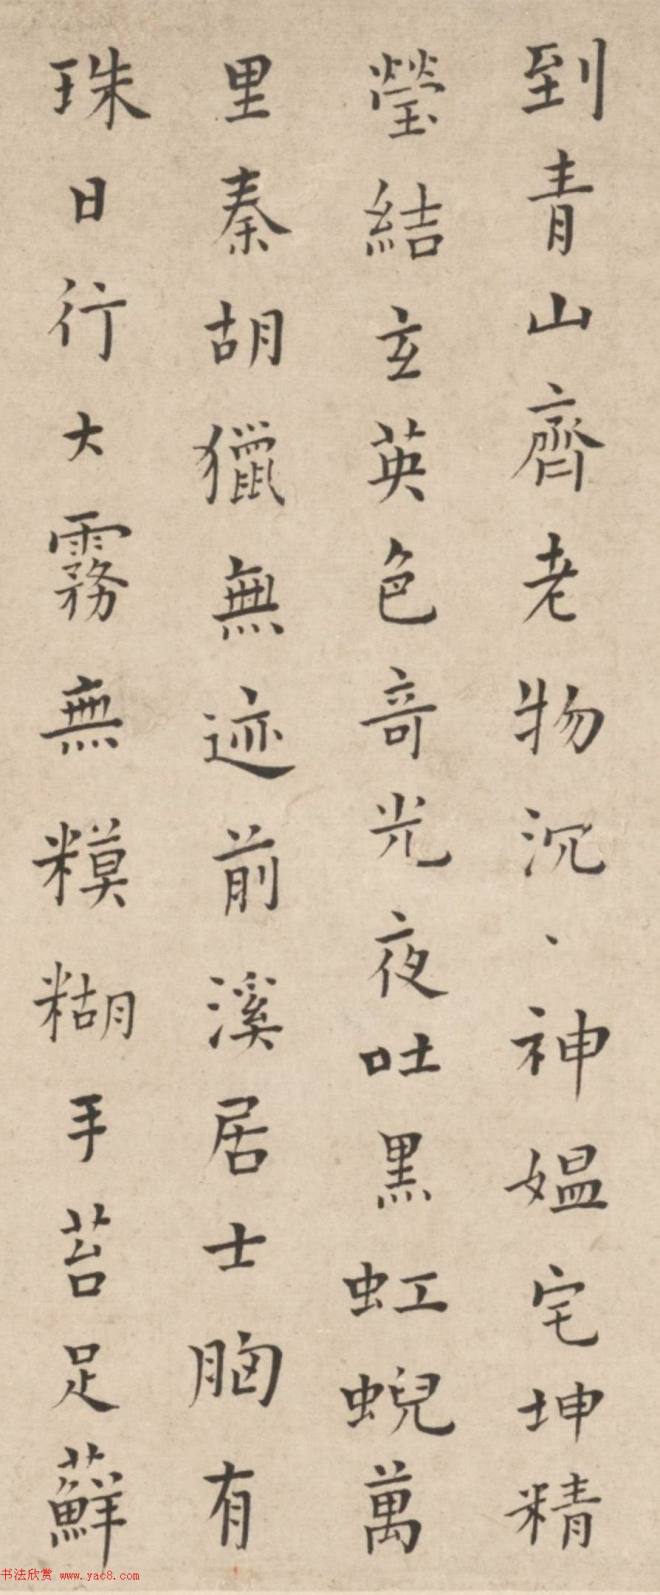 到青山齊老物沉、神媼宅坤精
瑩結玄英色奇光夜吐黑虹蜺萬
里秦胡獵無迹前溪居士胸有
珠日行大霧無糢糊手苔足蘚
书法欣赏 www.yac8.com